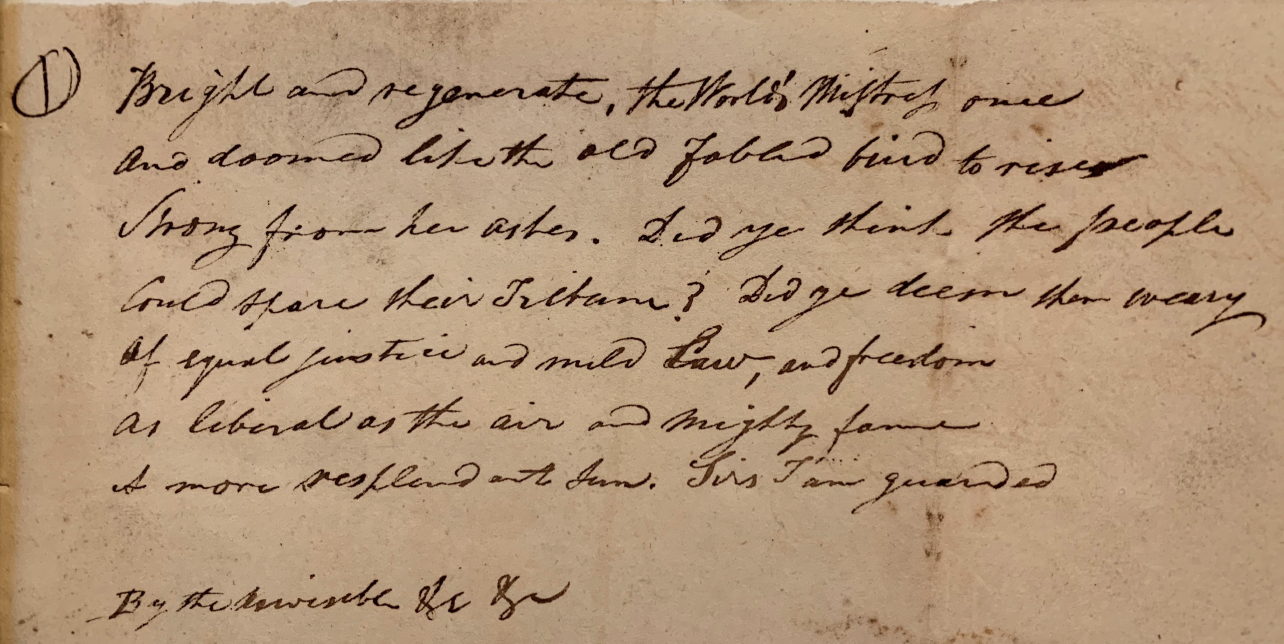 ①
Bright and regenerate, the World's Mistress once
And doomed like the old fabled bird to rise
Strong from her ashes. Did ye think the people
Could spare their Tribune? Did ye deem them weary
Of equal justice and mild Law, and freedom
As liberal as the air and mighty fame
A more resplendant Sun. Sirs I am guarded
By the invincible &c &c